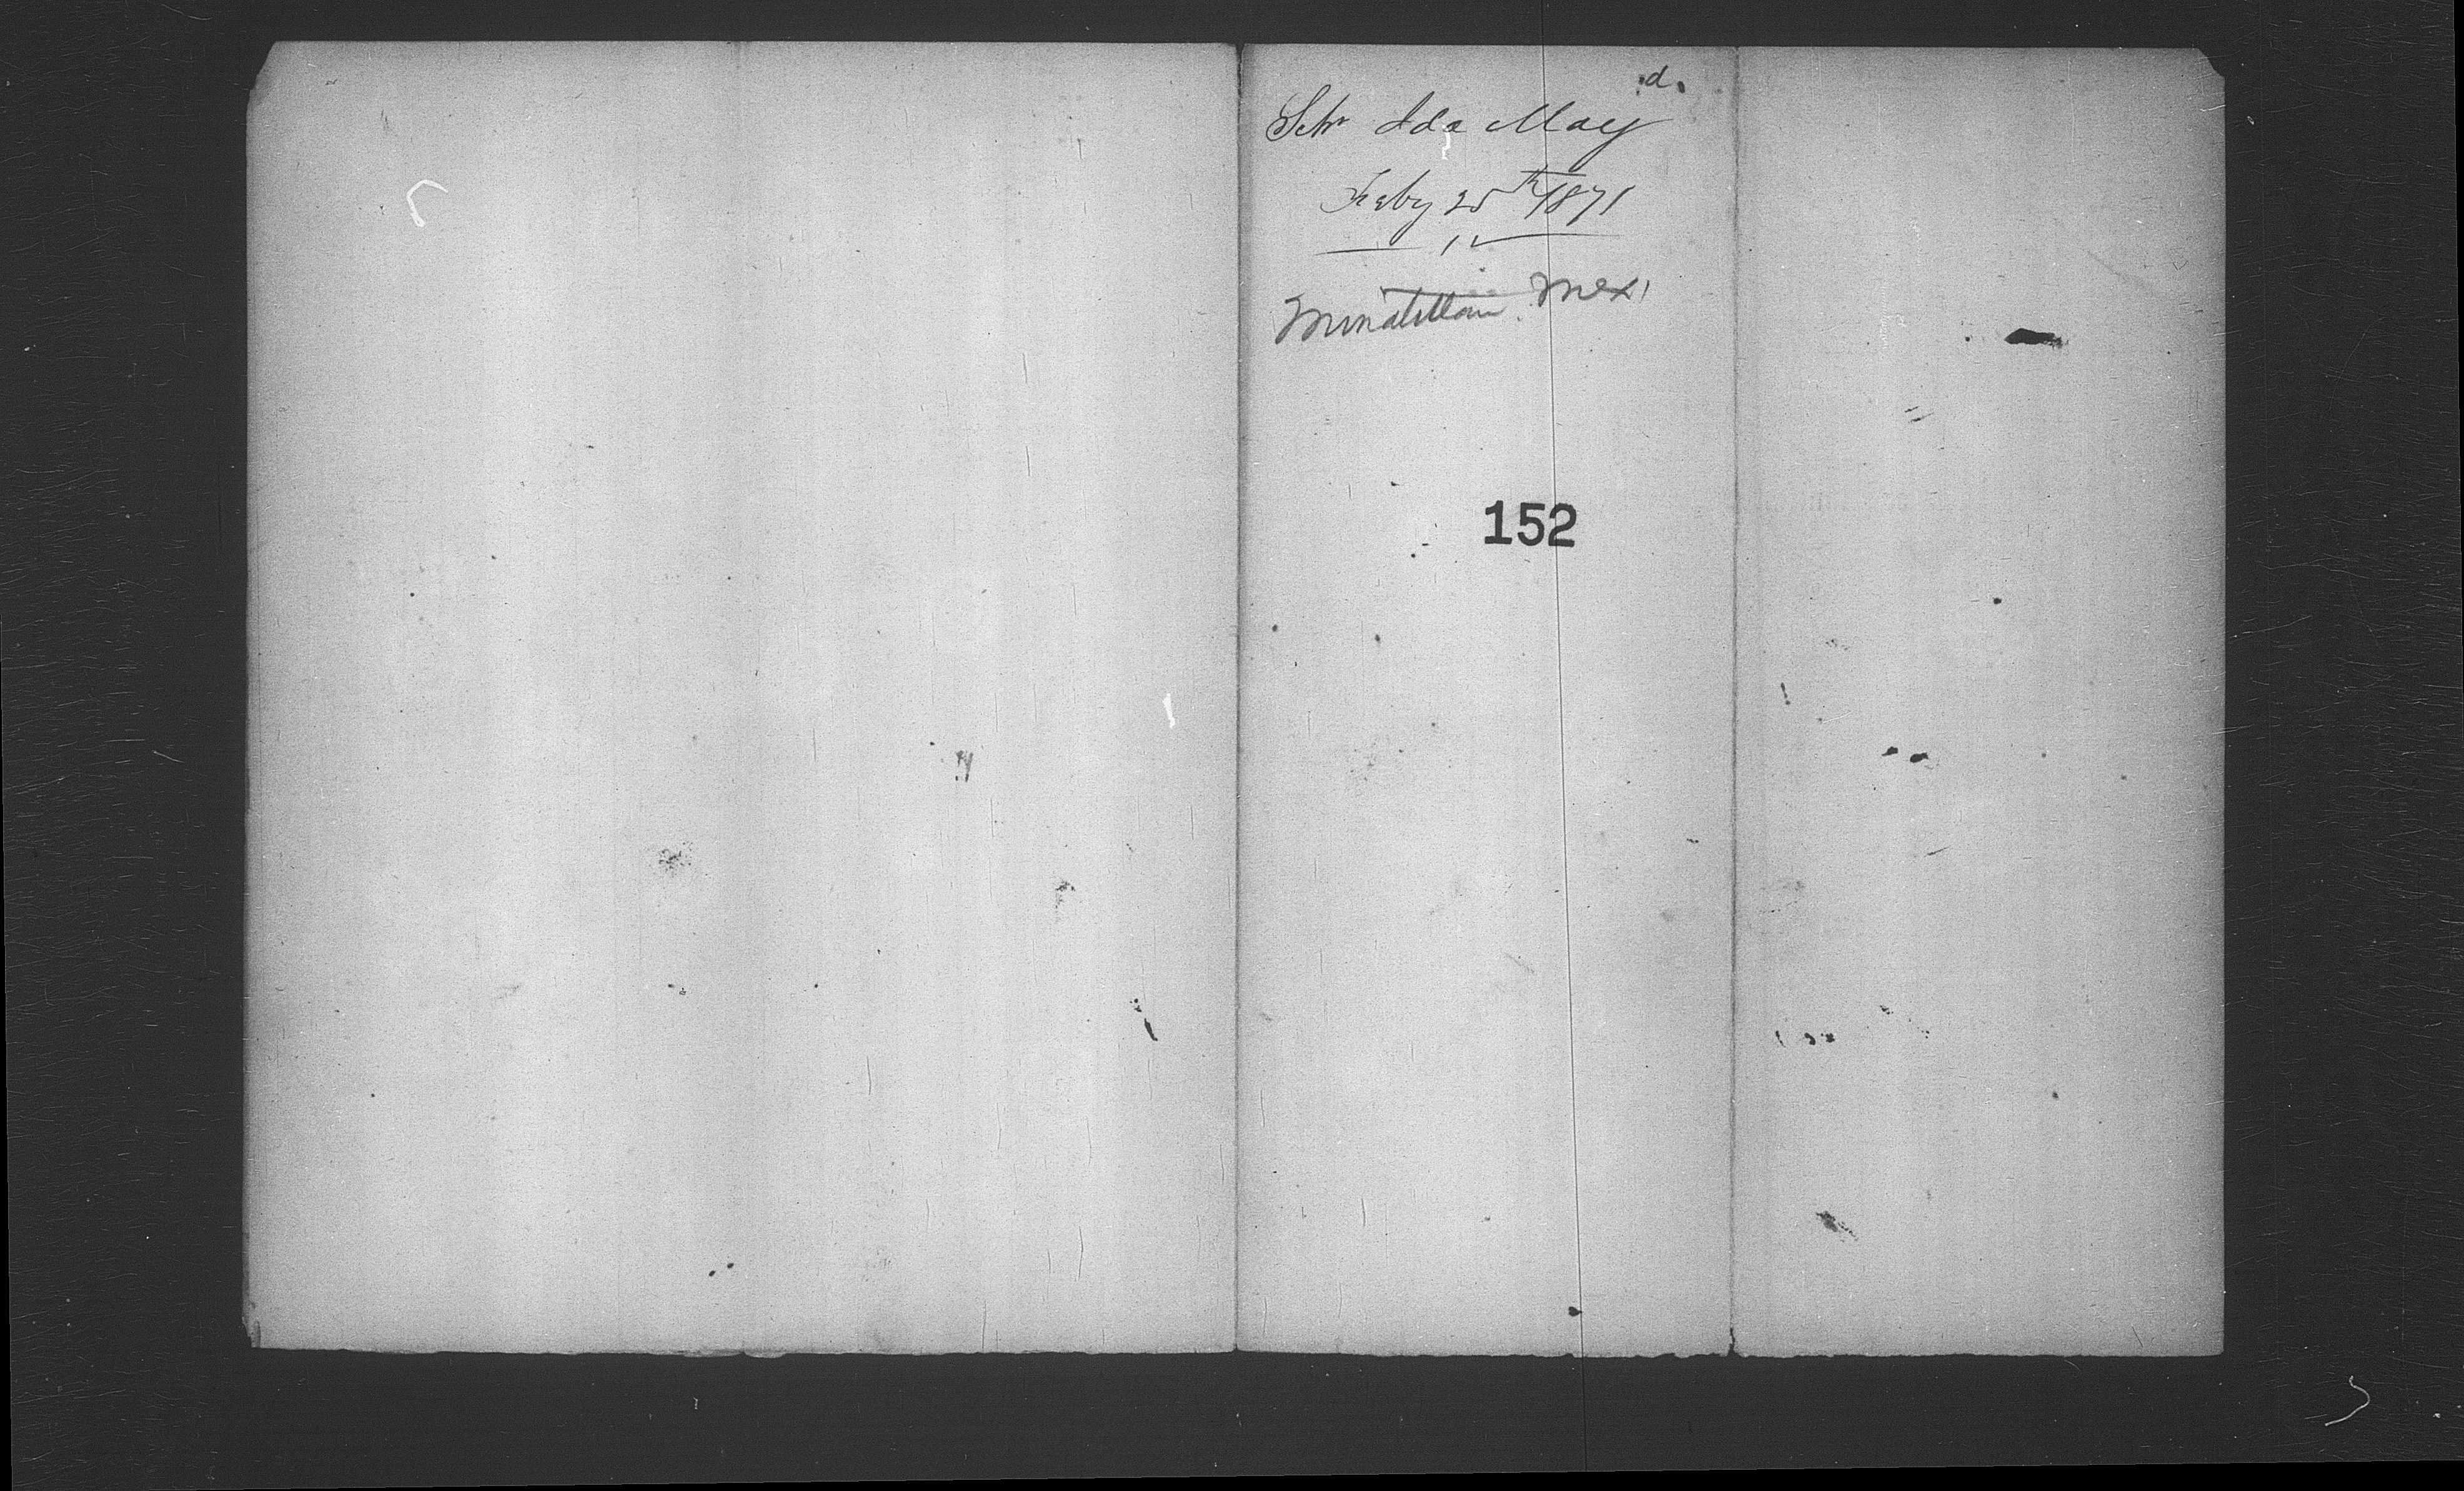 d.
Schr Ida May
Feby 25th 1871
Minatitlan. Mex
152